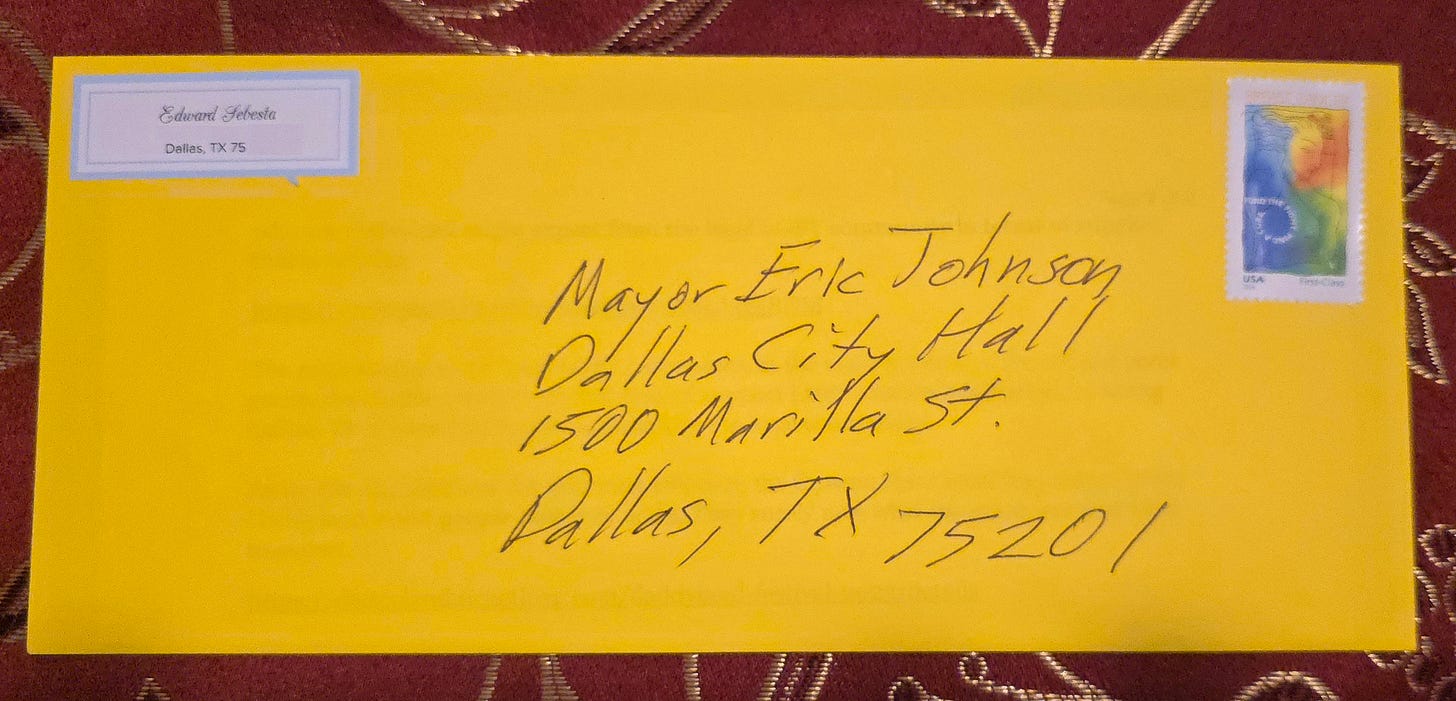 Edward Sebesta
Dallas, TX 75
Mayor Eric Johnson
Dallas City Hall
1500 Marilla St.
Dallas, TX 75201
FUND THE FIGHT
USA
First-Class